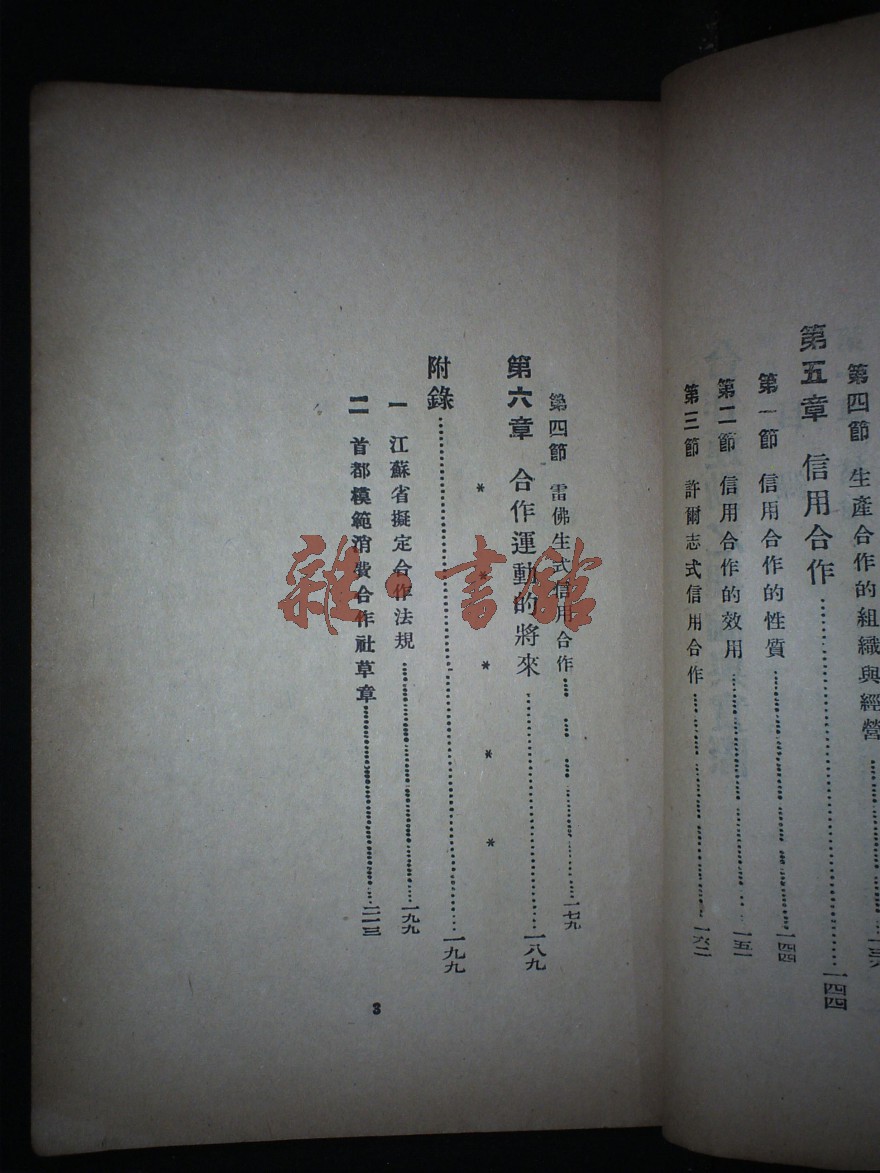 第四節 生產合作的組織與經營
第五章 信用合作 一四四
第一節 信用合作的性質 一四四
第二節 信用合作的效用 一五一
第三節 許爾志式信用合作 一六二
第四節 雷佛生式信用合作 一七九
第六章 合作運動的將來 一八九
* * * * *
附錄 一九九
一 江蘇省擬定合作法規 一九九
二 首都模範消費合作社草章 二一三
3
雜·書館